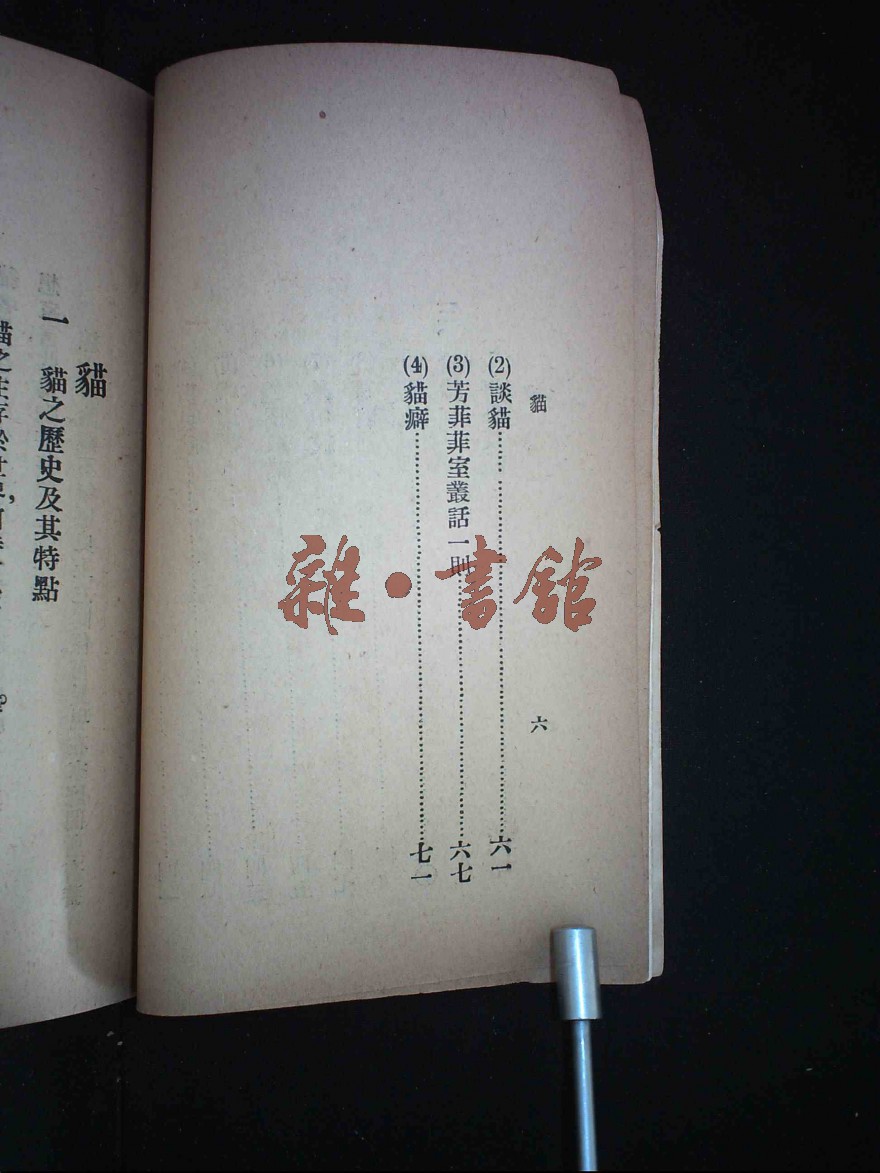 貓
六
(2)談貓……………………六一
(3)芳菲菲室叢話一則……………………六七
(4)貓癖……………………七一
雜·書館
貓
一 貓之歷史及其特點